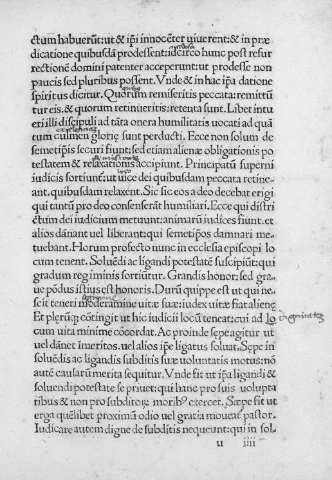 ctum habuerūt: ut & ip̄i innocēter uiuerent; & in præ
dicatione quibusdā prodessent: idcirco hunc post resur
rectionē domini patenter acceperunt: ut prodesse non
paucis sed pluribus possent. Vnde & in hac ip̄a datione
spiritus dicitur. Quorum remiseritis peccata: remittū
tur eis, & quorum retinueritis: retenta sunt. Libet intu
eri illi discipuli ad tāta onera humilitatis uocati ad quā
tum culmen glorię sunt perducti. Ecce non solum de
semetip̄is securi fiunt: sed etiam alienæ obligationis po
testatem & relaxationis accipiunt. Principatū superni
iudicis sortiunt: ut uice dei quibusdam peccata retine-
ant, quibusdam relaxent. Sic sic eos a deo decebat erigi
qui tantū pro deo consenserāt humiliari. Ecce qui distri
ctum dei iudicium metuunt: animarū iudices fiunt. et
alios dānant uel liberant: qui semetip̄os damnari me-
tuebant. Horum profecto nunc in ecclesia episcopi lo
cum tenent. Soluēdi ac ligandi potestatē suscipiūt: qui
gradum regiminis sortiūtur. Grandis honor: sed gra-
ue pōdus istius est honoris. Durū quippe est ut qui ne-
scit teneri moderamine uitæ suæ: iudex uitæ fiat alienę
Et plerūq; cōtingit ut hic iudicii locū teneat: cui ad lo
cum uita minime cōcordat. Ac proinde sępe agitur ut
uel dānet īmeritos. uel alios ip̄e ligatus soluat. Sępe in
soluēdis ac ligandis subditis suæ uoluntatis motus: nō
autē causarū merita sequitur. Vnde fit ut ip̄a ligandi &
soluendi potestate se priuet: qui hanc pro suis uolupta
tibus & non pro subditoꝝ morib⁹ exercet. Sæpe fit ut
erga quēlibet proximū odio uel gratia moueat̄ pastor.
Iudicare autem digne de subditis nequeunt: qui in sol-
u iiii